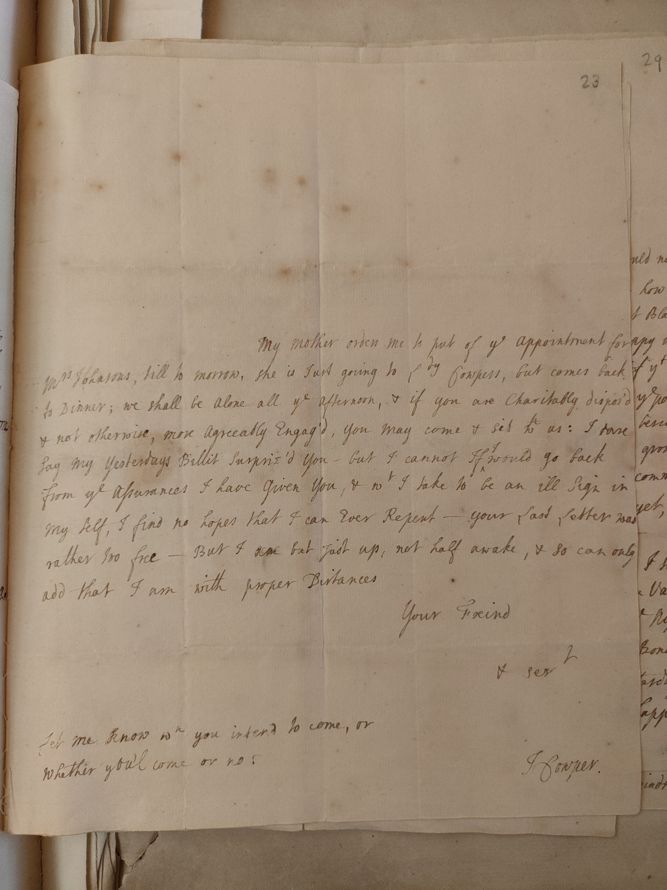 23
29
My Mother orders me to put of yᵉ Appointment for
Mʳˢ Johnsons, till to morrow, she is Just going to Lᵈʸ Cowpers, but comes back
to Dinner; we shall be Alone all yᵉ Afternoon, & if you are Charitably dispos'd
& not otherwise, more Agreeably Engag'd, you may come & sit wᵗʰ us: I dare
say my Yesterdays Billit Surpriz'd You - but I cannot If I would go back
from yᵉ Assurances I have Given You, & wᵗ I take to be an ill Sign in
My Self, I find no hopes that I can Ever Repent — your Last Letter was
rather too free — But I am but Just up, not half awake, & so can only
add that I am with proper Distances
Your Freind
& serᵗ
Let me Know wⁿ you intend to come, or
whether you'l come or no:
J Cowper.